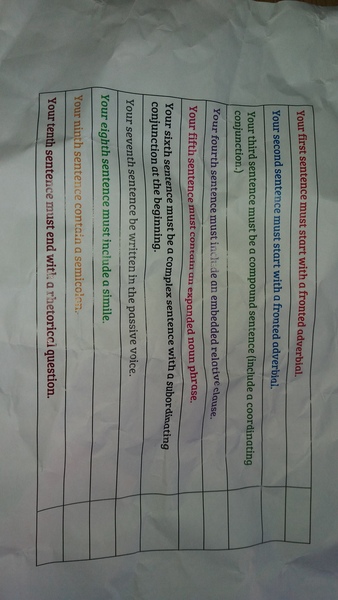 Your first sentence must start with a fronted adverbial.
Your second sentence must start with a fronted adverbial.
Your third sentence must be a compound sentence (include a coordinating
conjunction.)
Your fourth sentence must include an embedded relative clause.
Your fifth sentence must contain an expanded noun phrase.
Your sixth sentence must be a complex sentence with a subordinating
conjunction at the beginning.
Your seventh sentence be written in the passive voice.
Your eighth sentence must include a simile.
Your ninth sentence contain a semicolon.
Your tenth sentence must end with a rhetorical question.